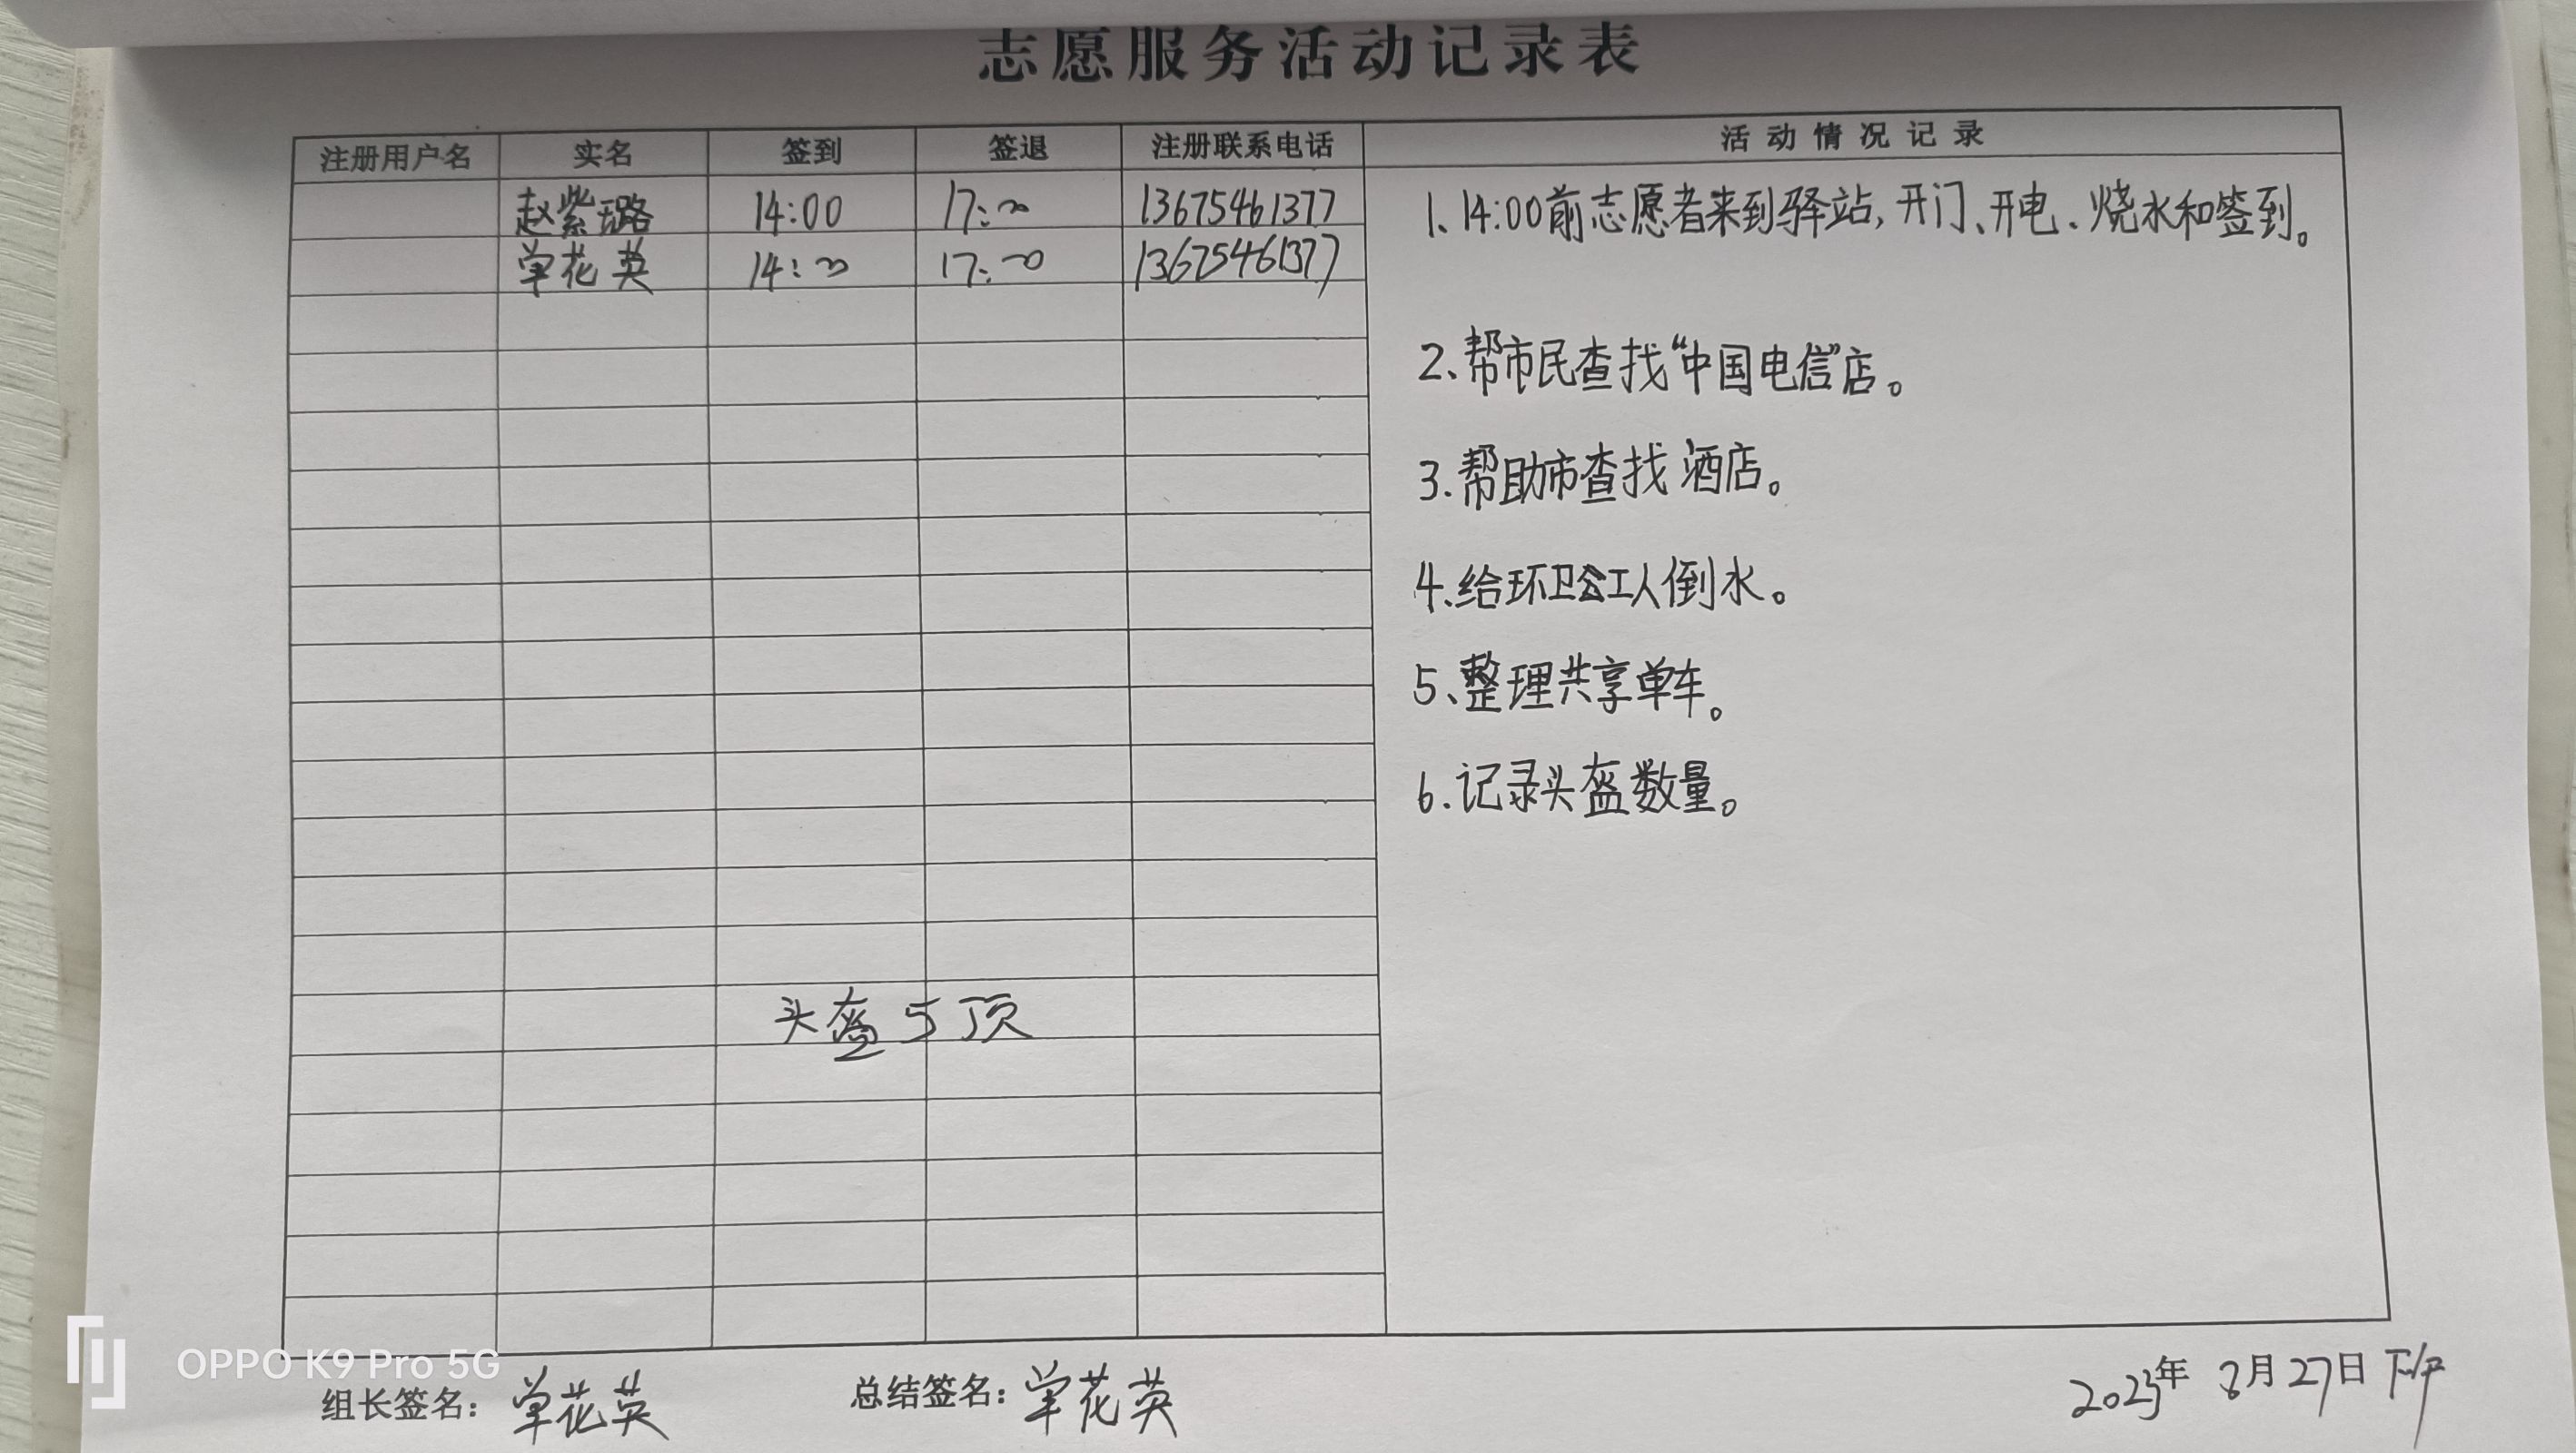 志愿服务活动记录表
注册用户名 实名 签到 签退 注册联系电话 活动情况记录
赵紫璐 14:00 17:00 13675461377
单花英 14:00 17:00 13675461377
1、14:00前志愿者来到驿站,开门、开电、烧水和签到。
2、帮市民查找“中国电信”店。
3.帮助市查找酒店。
4、给环卫工人倒水。
5、整理共享单车。
6.记录头盔数量。
头盔5顶
组长签名：单花英 总结签名：单花英 2023年8月27日下午
OPPO K9 Pro 5G